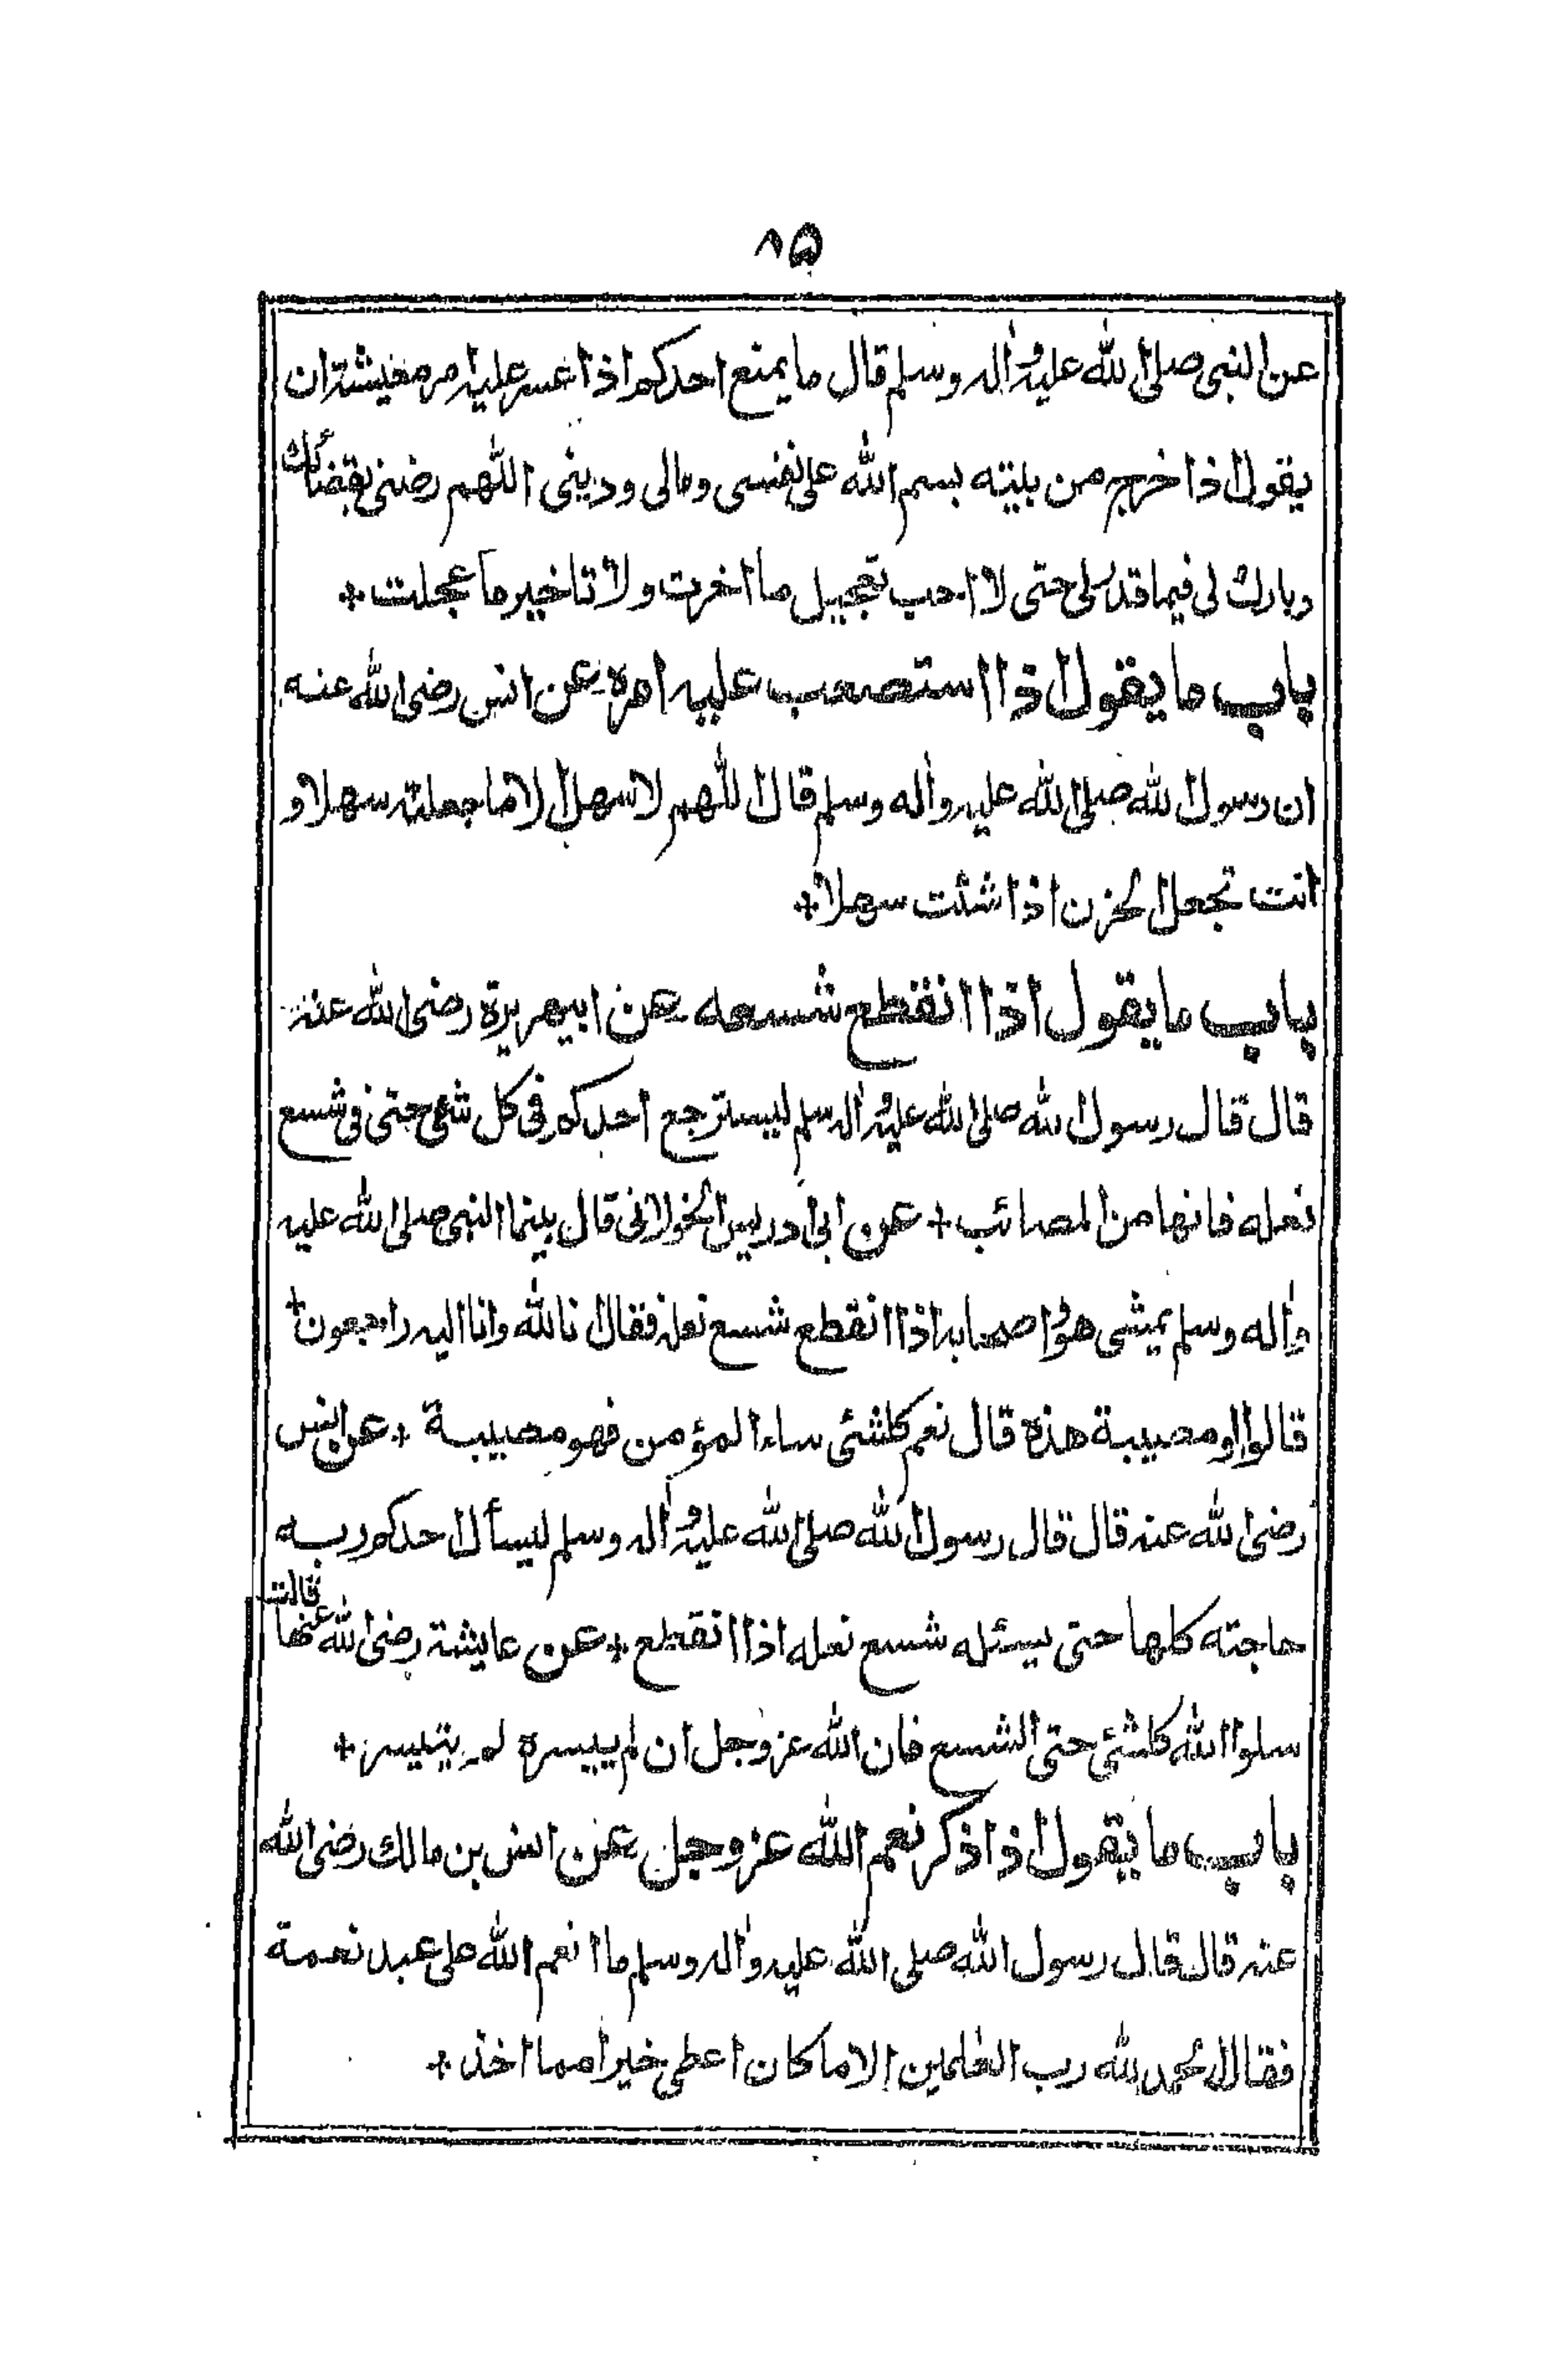 ٨٥
عن النبى صلى الله عليه وأله وسلم قال ما يمنع احدكم اذا عسر عليه امر معيشته ان
يقول اذا خرج من بيته بسم الله على نفسى ومالى ودينى اللهم رضنى بقضائك
وبارك لى فيما قدر لى حتى لا احب تعجيل ما اخرت ولا تاخير ما عجلت +
باب ما يقول اذا استصعب عليه امره عن انس رضى الله عنه
ان رسول الله صلى الله عليه وأله وسلم قال اللهم لا سهل الا ما جعلته سهلا و
انت تجعل الحزن اذا شئت سهلا +
باب ما يقول اذا انقطع شسعه عن ابيهريرة رضى الله عنه
قال قال رسول الله صلى الله عليه وأله وسلم ليسترجع احدكم فى كل شئ حتى فى شسع
نعله فانها من المصائب + عن ابى ادريس الخولانى قال بينما النبى صلى الله عليه
وأله وسلم يمشى هو واصحابه اذا انقطع شسع نعله فقال انا لله وانا اليه راجعون +
قالوا او مصيبة هذه قال نعم كلشئى ساء المؤمن فهو مصيبة + عن انس
رضى الله عنه قال قال رسول الله صلى الله عليه وأله وسلم ليسأل احدكم ربه
حاجته كلها حتى يسئله شسع نعله اذا انقطع + عن عايشة رضى الله عنها قالت
سلوا الله كلشئى حتى الشسع فان الله عز وجل ان لم ييسره لم يتيسر +
باب ما يقول اذا ذكر نعم الله عز وجل عن انس بن مالك رضى الله
عنه قال قال رسول الله صلى الله عليه وأله وسلم ما انعم الله على عبد نعمة
فقال الحمد لله رب العلمين الا ما كان اعطى خيرا مما اخذ +